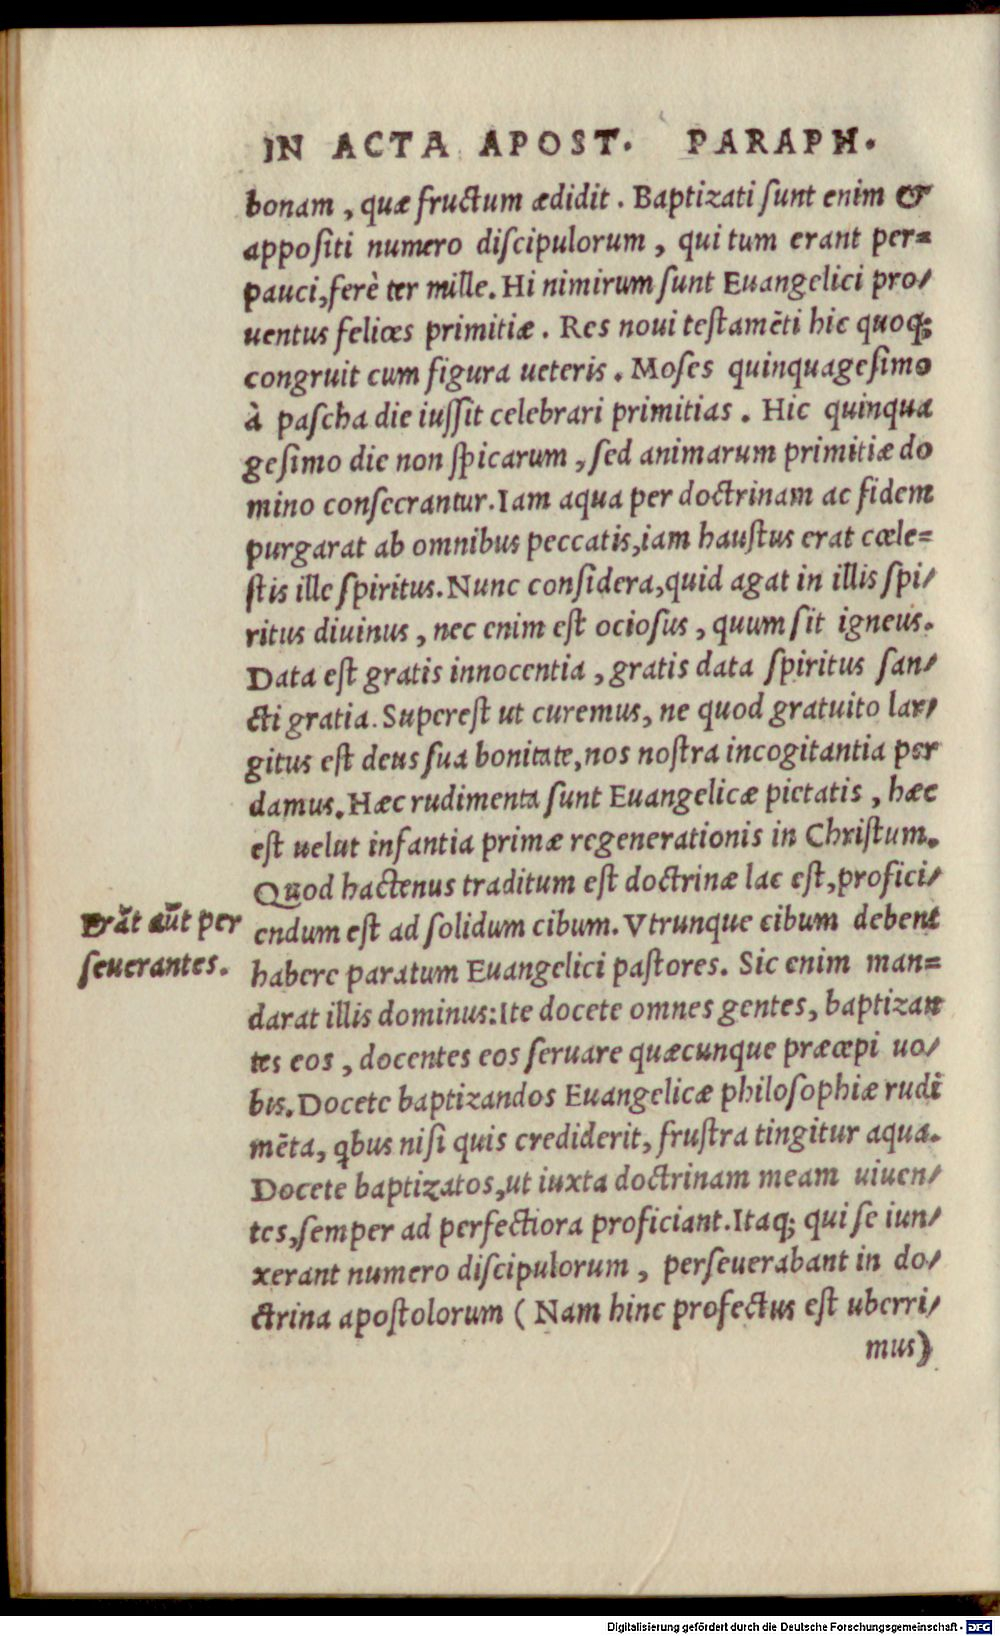 IN ACTA APOST. PARAPH.
bonam, quæ fructum ædidit. Baptizati ſunt enim &
appoſiti numero diſcipulorum, qui tum erant per=
pauci, ferè ter mille. Hi nimirum ſunt Euangelici pro/
uentus felices primitiæ. Res noui teſtamēti hic quoq;
congruit cum figura ueteris. Moſes quinquageſimo
à paſcha die iuſſit celebrari primitias. Hic quinqua
geſimo die non ſpicarum, ſed animarum primitiæ do
mino conſecrantur. Iam aqua per doctrinam ac fidem
purgarat ab omnibus peccatis, iam hauſtus erat cœle=
ſtis ille ſpiritus. Nunc conſidera, quid agat in illis ſpi/
ritus diuinus, nec enim eſt ocioſus, quum ſit igneus.
Data eſt gratis innocentia, gratis data ſpiritus ſan/
cti gratia. Supereſt ut curemus, ne quod gratuito lar/
gitus eſt deus ſua bonitate, nos noſtra incogitantia per
damus. Hæc rudimenta ſunt Euangelicæ pietatis, hæc
eſt uelut infantia primæ regenerationis in Chriſtum.
Quod hactenus traditum eſt doctrinæ lac eſt, profici/
Erāt aūt per
ſeuerantes.
endum eſt ad ſolidum cibum. Vtrunque cibum debent
habere paratum Euangelici paſtores. Sic enim man=
darat illis dominus: Ite docete omnes gentes, baptizan
tes eos, docentes eos ſeruare quæcunque præcepi uo/
bis. Docete baptizandos Euangelicæ philoſophiæ rudi
mēta, ꝗbus niſi quis crediderit, fruſtra tingitur aqua.
Docete baptizatos, ut iuxta doctrinam meam uiuen/
tes, ſemper ad perfectiora proficiant. Itaq; qui ſe iun/
xerant numero diſcipulorum, perſeuerabant in do/
ctrina apoſtolorum (Nam hinc profectus eſt uberri/
mus)
Digitalisierung gefördert durch die Deutsche Forschungsgemeinschaft - DFG